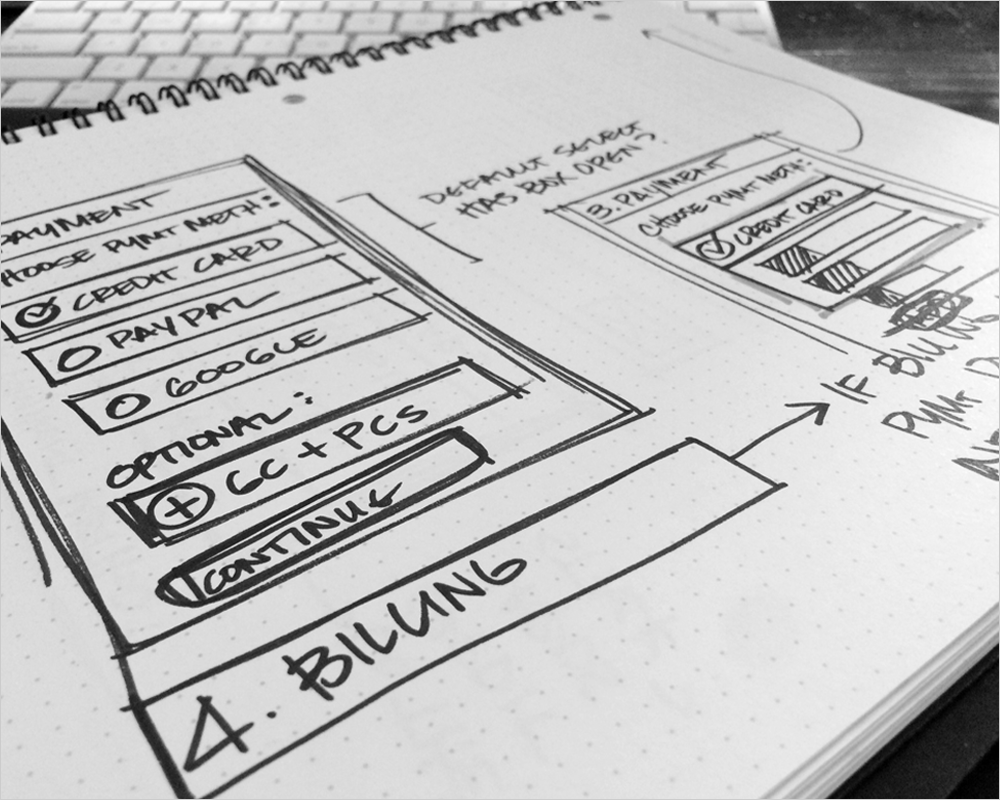 PAYMENT
CHOOSE PYMT METH:
CREDIT CARD
PAYPAL
GOOGLE
OPTIONAL:
GC + PCS
CONTINUE
4. BILLING
DEFAULT SELECT
HAS BOX OPEN?
3. PAYMENT
CHOOSE PYMT METH:
CREDIT CARD
IF BILLING
PYMT